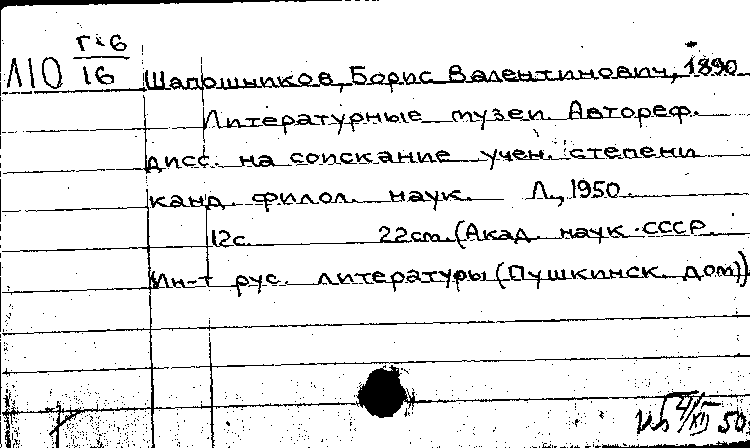 Г-6
Л10 16
Шапошников, Борис Валентинович, 1890
Литературные музеи. Автореф.
дисс. на соискание учен. степени
канд. филол. наук. Л., 1950.
12с. 22см. (Акад. наук СССР.
Ин-т рус. литературы (Пушкинск. дом))
4/XII 50